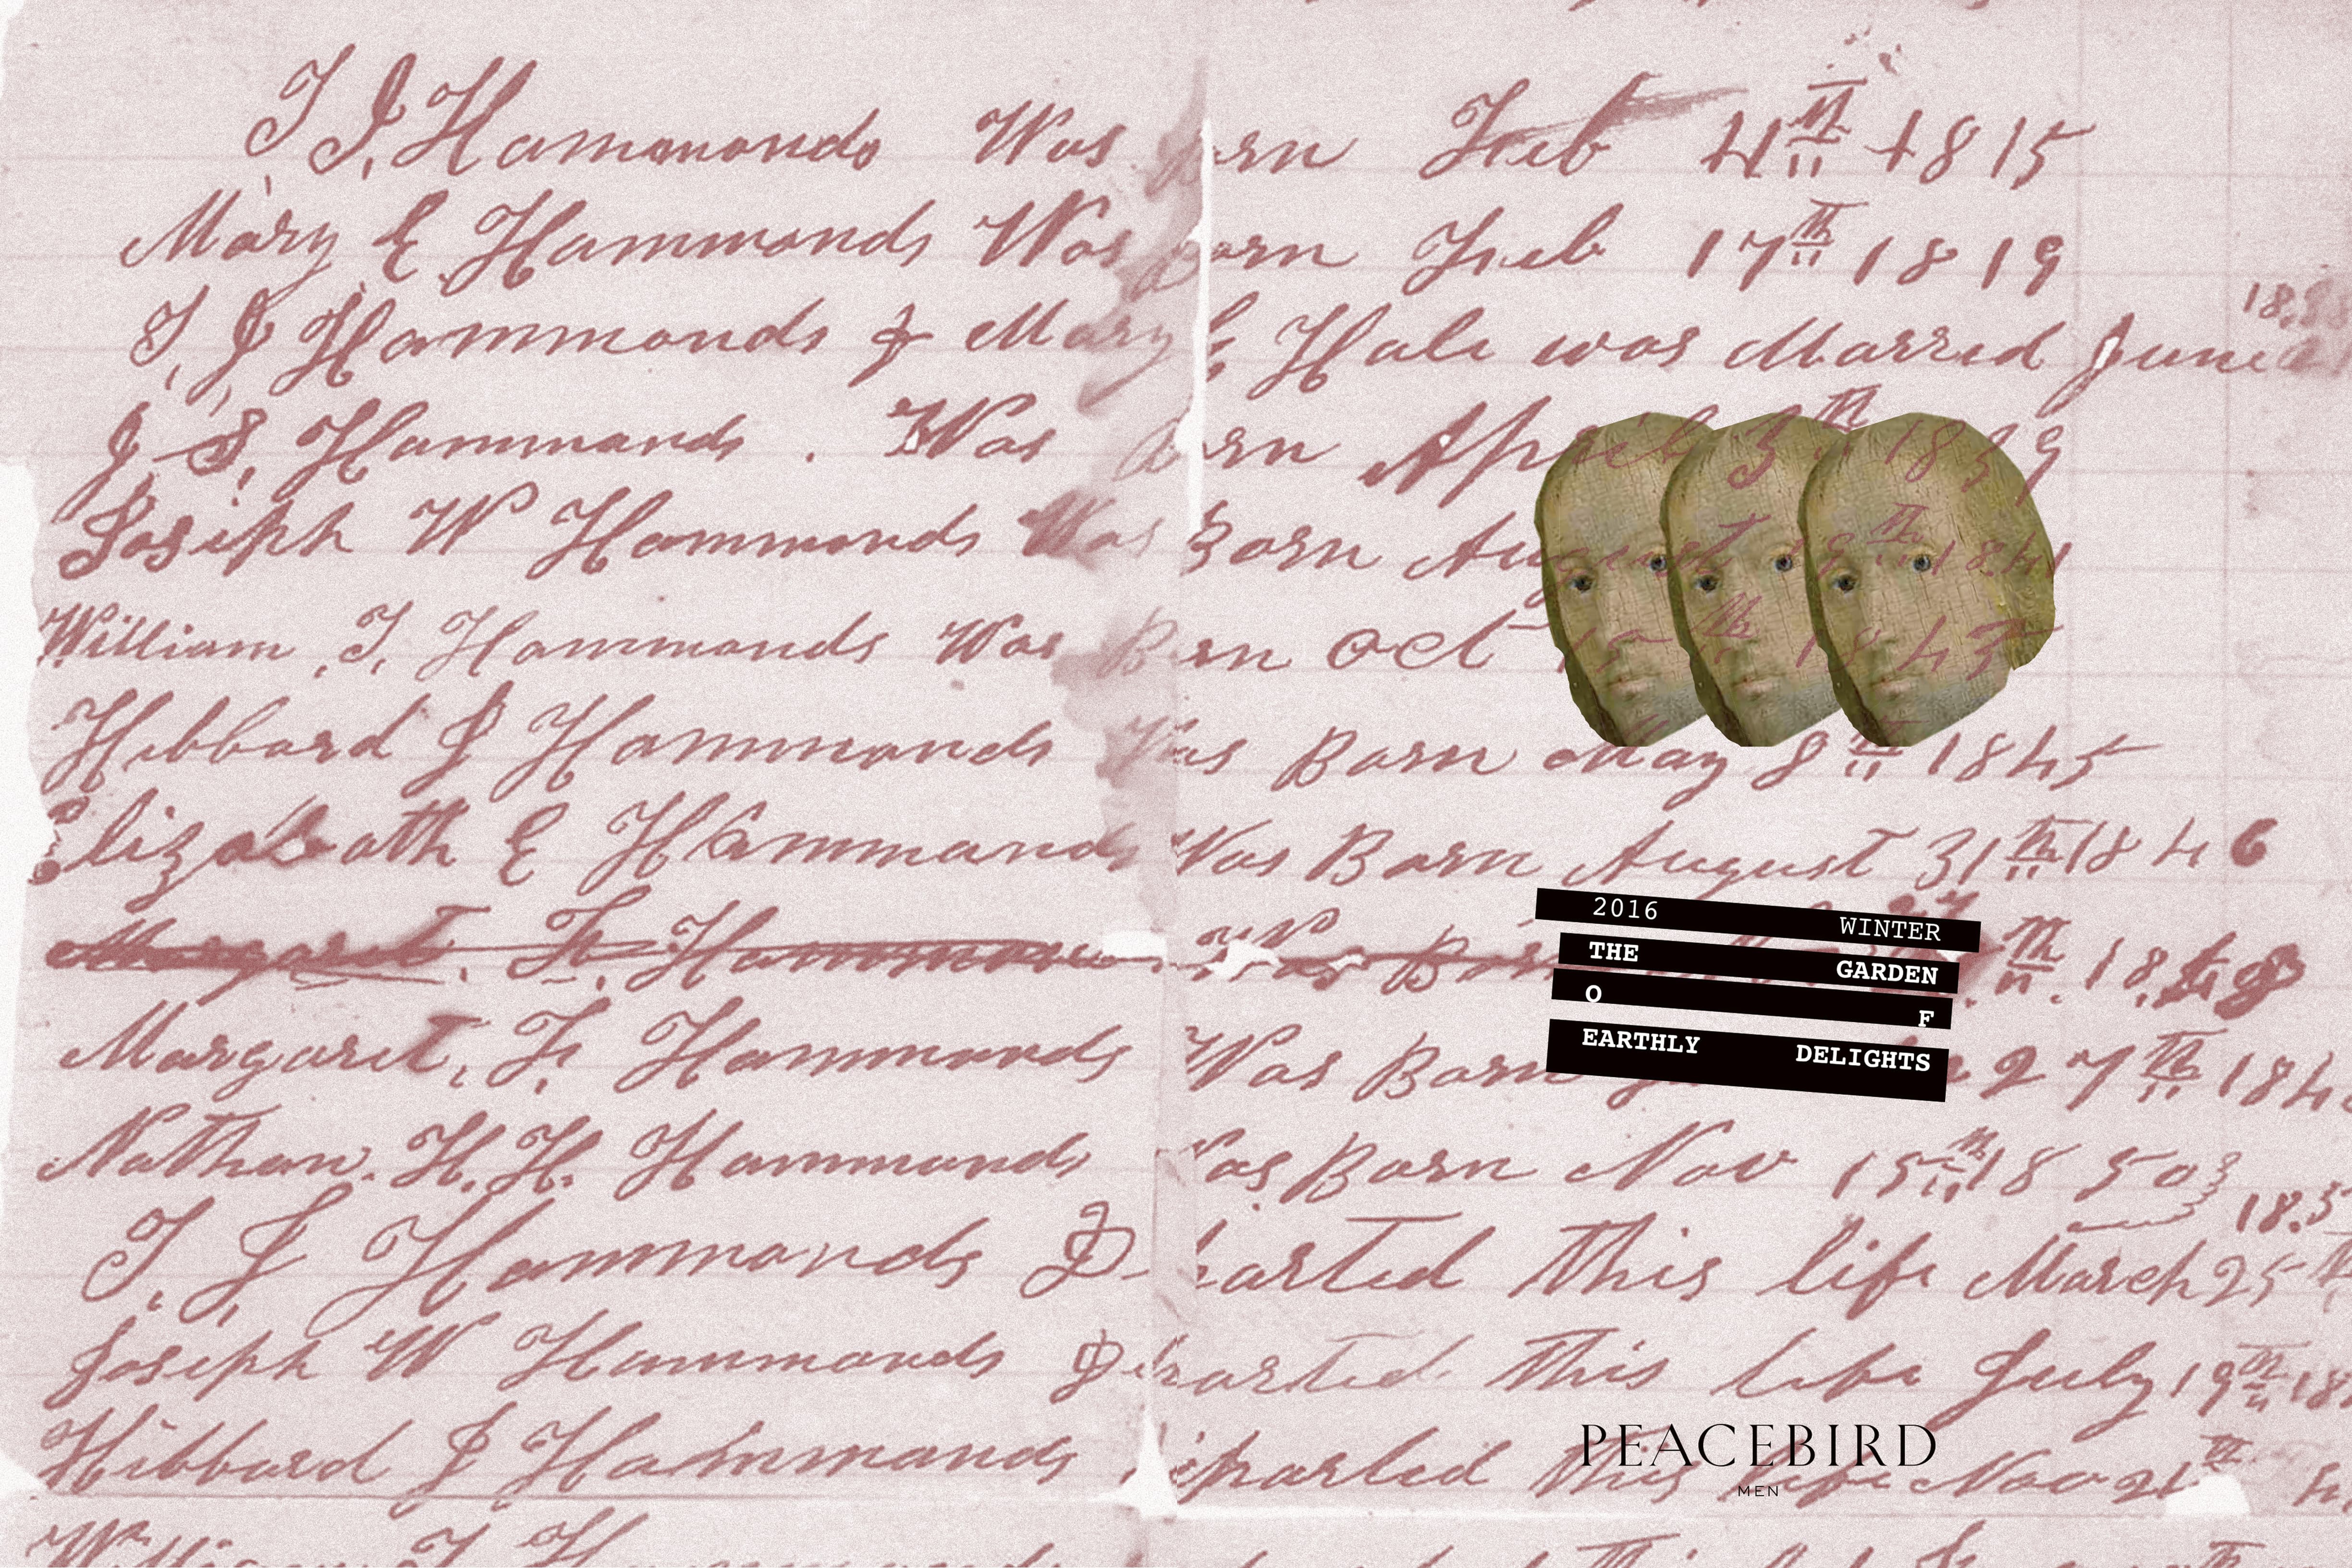 T, J, Hammonds Was Born Feb 4th 1815
Mary E Hammonds Was Born Feb 17th 1819
18.
T, J, Hammonds & Mary E Hale was Marred June
J S, Hammonds . Was Born April 3th 1839
Joseph W Hammonds Was Born August 1841
William , T, Hammonds Was Born Oct 1843
Hibbard J Hammonds Was Born May 8th 1845
Elizabeath E Hammonds Was Born August 31th 1846
Margaret. F. Hammons Was Born th. 1848
Margaret, F, Hammonds Was Born 27th 184
Nathan. H. H. Hammonds Was Born Nov 15th 1850
18.5
T, J, Hammonds Departed This life March 25th
Joseph W Hammonds Departed. This life July 19th 18
Hibbard J Hammonds Departed This life Nov 21th
William T H
2016 WINTER
THE GARDEN
O F
EARTHLY DELIGHTS
PEACEBIRD
MEN